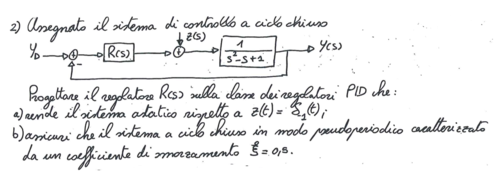 2) Assegnato il sistema di controllo a ciclo chiuso
z(s)
Y_D R(s) 1 Y(s)
s²-s+1
Progettare il regolatore R(s) sulla classe dei regolatori PID che:
a) rende il sistema astatico rispetto a z(t) = δ₋₁(t);
b) assicuri che il sistema a ciclo chiuso in modo pseudoperiodico caratterizzato
da un coefficiente di smorzamento ξ = 0,5.